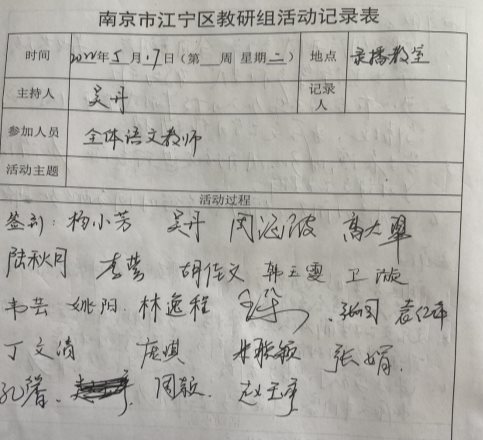 南京市江宁区教研组活动记录表
时间 2022年5月17日（第 周 星期二） 地点 录播教室
主持人 吴丹 记录人
参加人员 全体语文教师
活动主题
活动过程
签到：杨小芳 吴丹 高大翠
陆秋月 李莹 胡佳文 韩玉雯 卫
韦芸 姚阳 林逸程 袁红
丁文清 庞琪 张娟
孔馨 周颖 赵